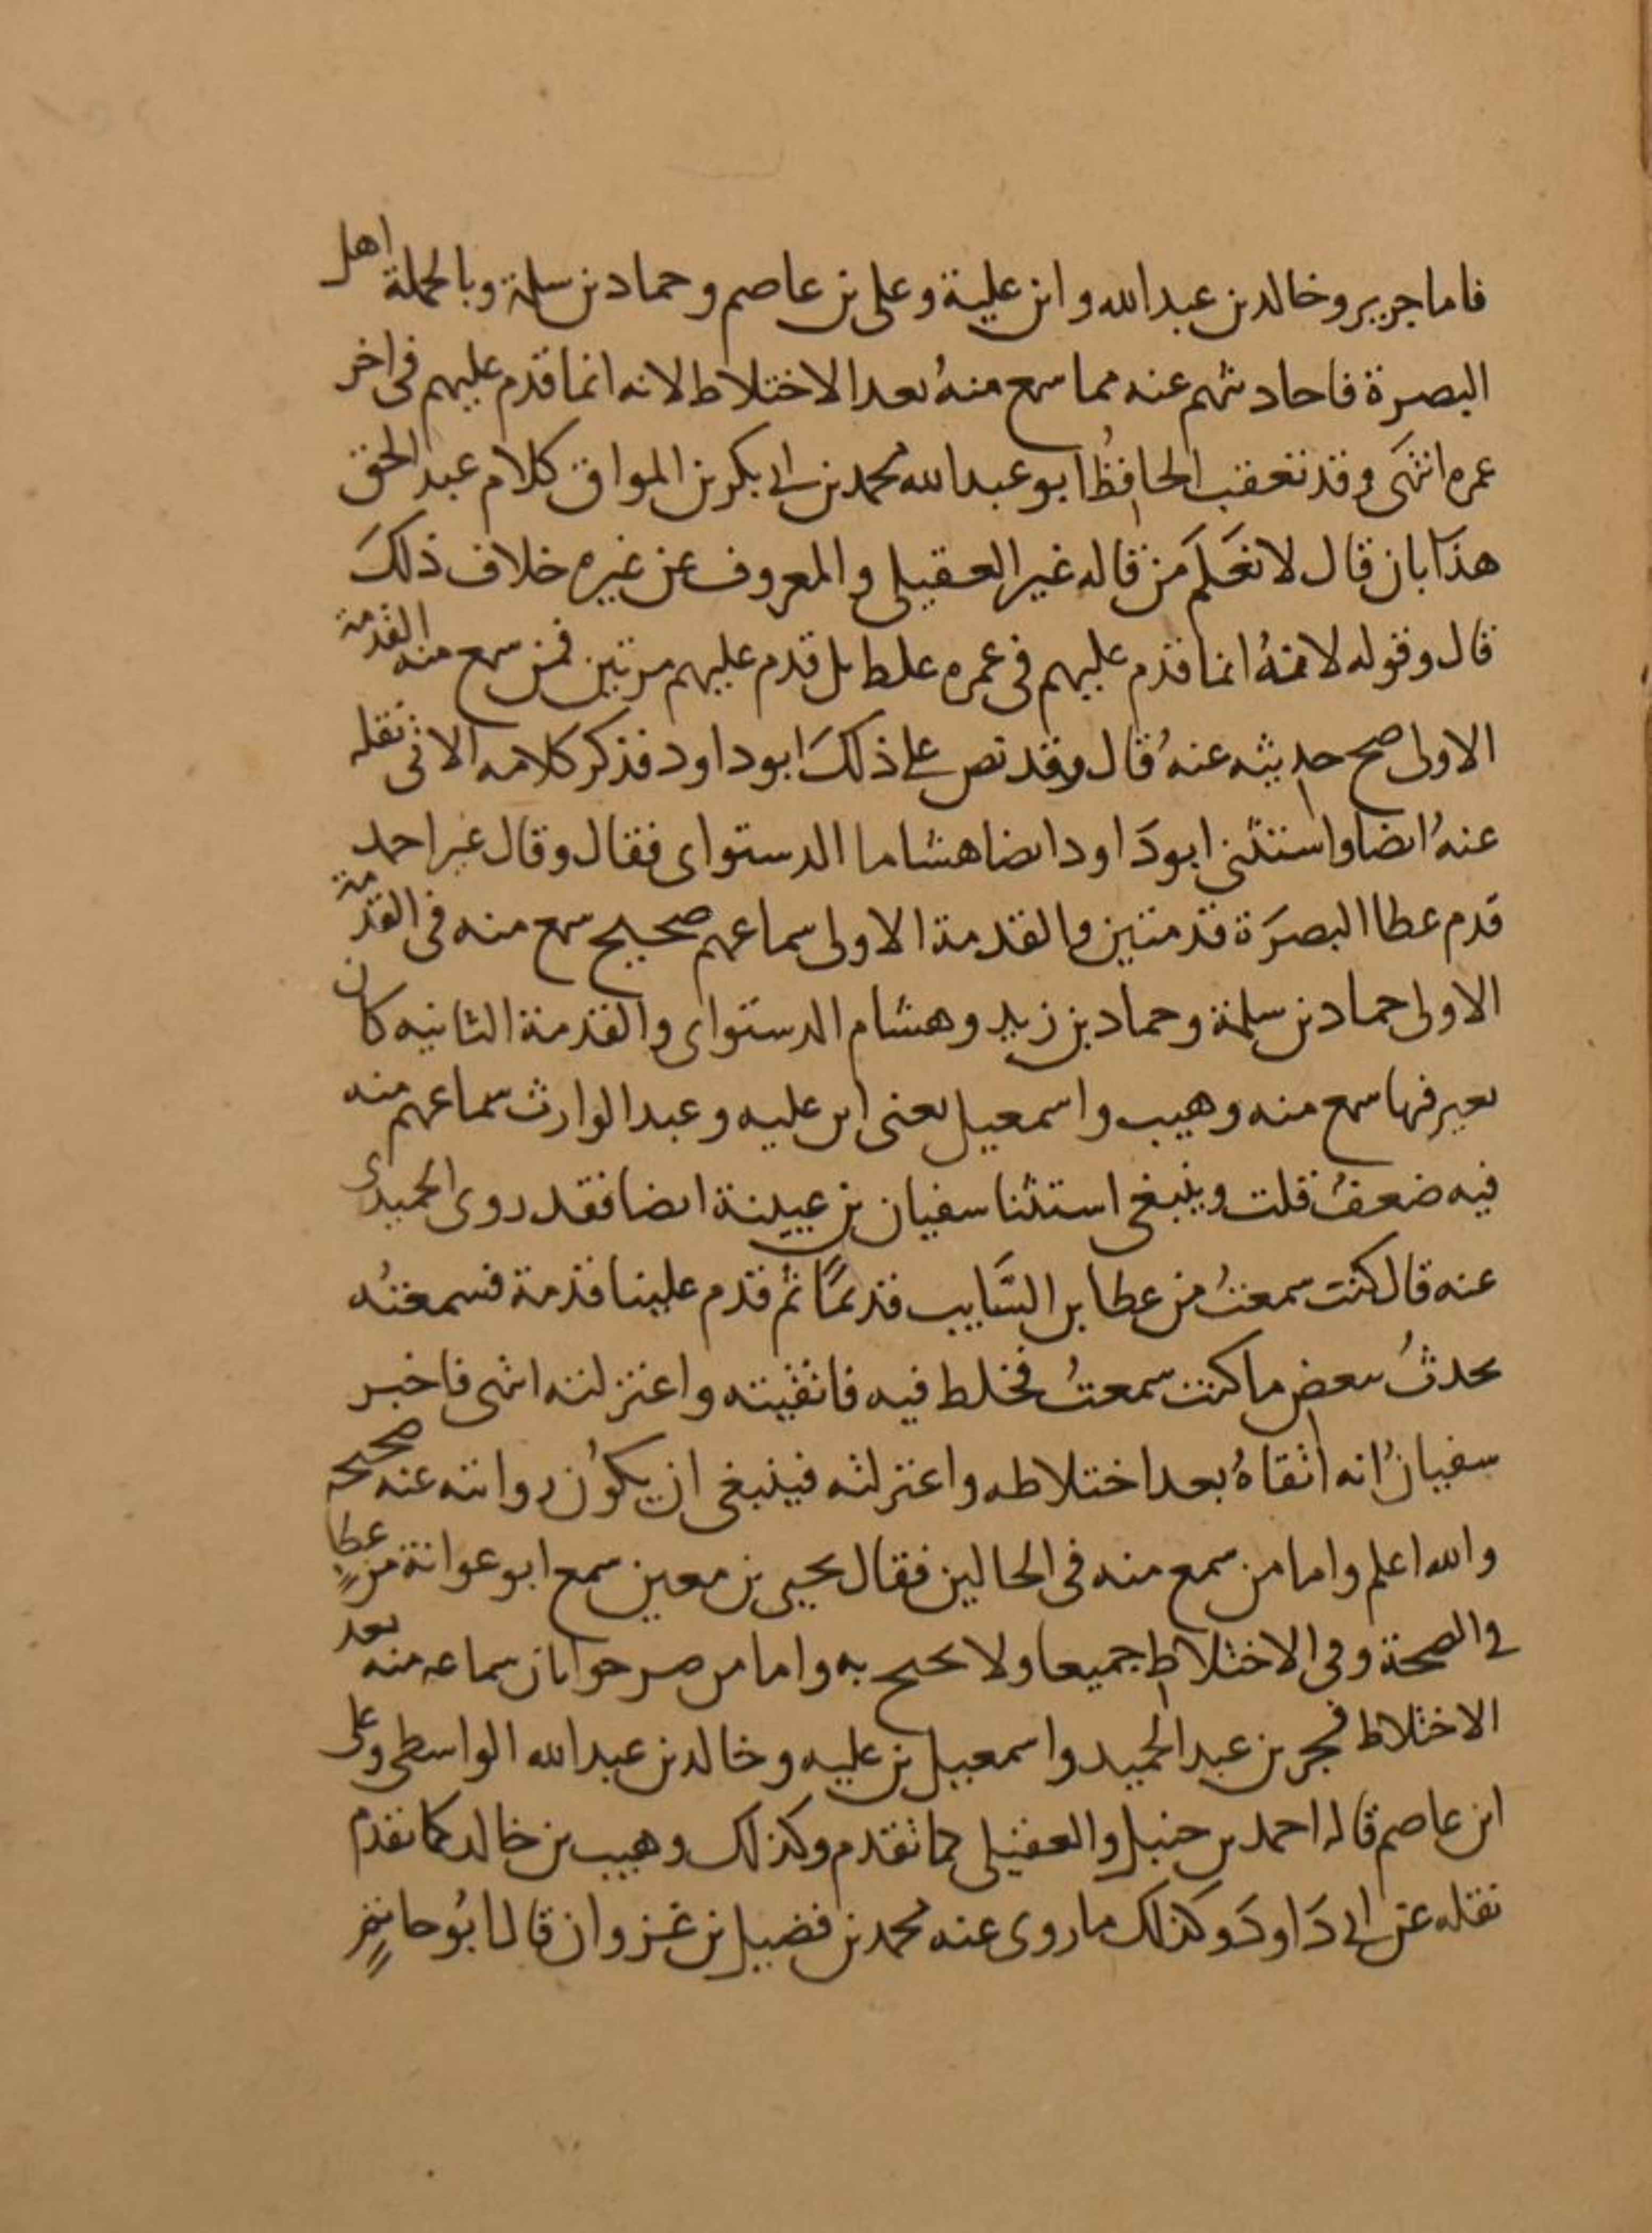 فاما جرير وخالد بن عبدالله وابن علية وعلى بن عاصم وحماد بن سلمة وبالجملة اهل
البصرة فاحاديثهم عنه مما سمع منهُ بعد الاختلاط لانه انما قدم عليهم فى اخر
عمره انتهَى وقد تعقب الحافظُ ابو عبدالله محمد بن ابى بكر بن المواق كلام عبد الحق
هذَا بان قال لا نعَلمَ مَن قاله غير العقيلى والمعروف عن غيره خلاف ذلكَ
قال وقوله لانهُ انما قدم عليهم فى عمره غلط بل قدم عليهم مرتين فمن سمع منه القدمة
الاولى صح حديثه عنهُ قال وقد نص على ذلكَ ابو داود فذكر كلامه الاتى نقله
عنهُ ايضا واستثنى ابو دَاود ايضا هشاما الدستواى فقال وقال غير احمد
قدم عطا البصَرة قدمتين والقدمة الاولى سماعهم صحيح سمع منه فى القدمة
الاولى حماد بن سلمة وحماد بن زيد وهشام الدستواى والقدمة الثانيه كان
تغير فيها سمع منه وهيب واسمعيل يعنى ابن عليه وعبد الوارث سماعهم منه
فيه ضعفُ قلت وينبغى استثنا سفيان بن عيينة ايضا فقد روى الحميدى
عنه قال كنت سمعتُ من عطا بن السَايب قديمًا ثم قدم علينا قدمة فسمعتُه
يحدثُ ببعض ما كنت سمعتُ فخلط فيه فاتقيته واعتزلته انتهى فاخبر
سفيانُ انه اتقاهُ بعد اختلاطه واعتزلته فينبغى ان يكوُن روايته عنه صحيحة
والله اعلم واما من سمع منه فى الحالين فقال يحيى بن معين سمع ابو عوانة من عطا
فى الصحة وفى الاختلاط جميعا ولا يحتج به واما من صرحوا بان سماعه منه بعد
الاختلاط فجرير بن عبد الحميد واسمعيل بن عليه وخالد بن عبدالله الواسطى وعلى
ابن عاصم قاله احمد بن حنبل والعقيلى كما تقدم وكذلك وهيب بن خالد كما تقدم
نقله عن ابى دَاودَ وكذلك ما روى عنه محمد بن فضيل بن غزوان قال ابُو حاتمٍ